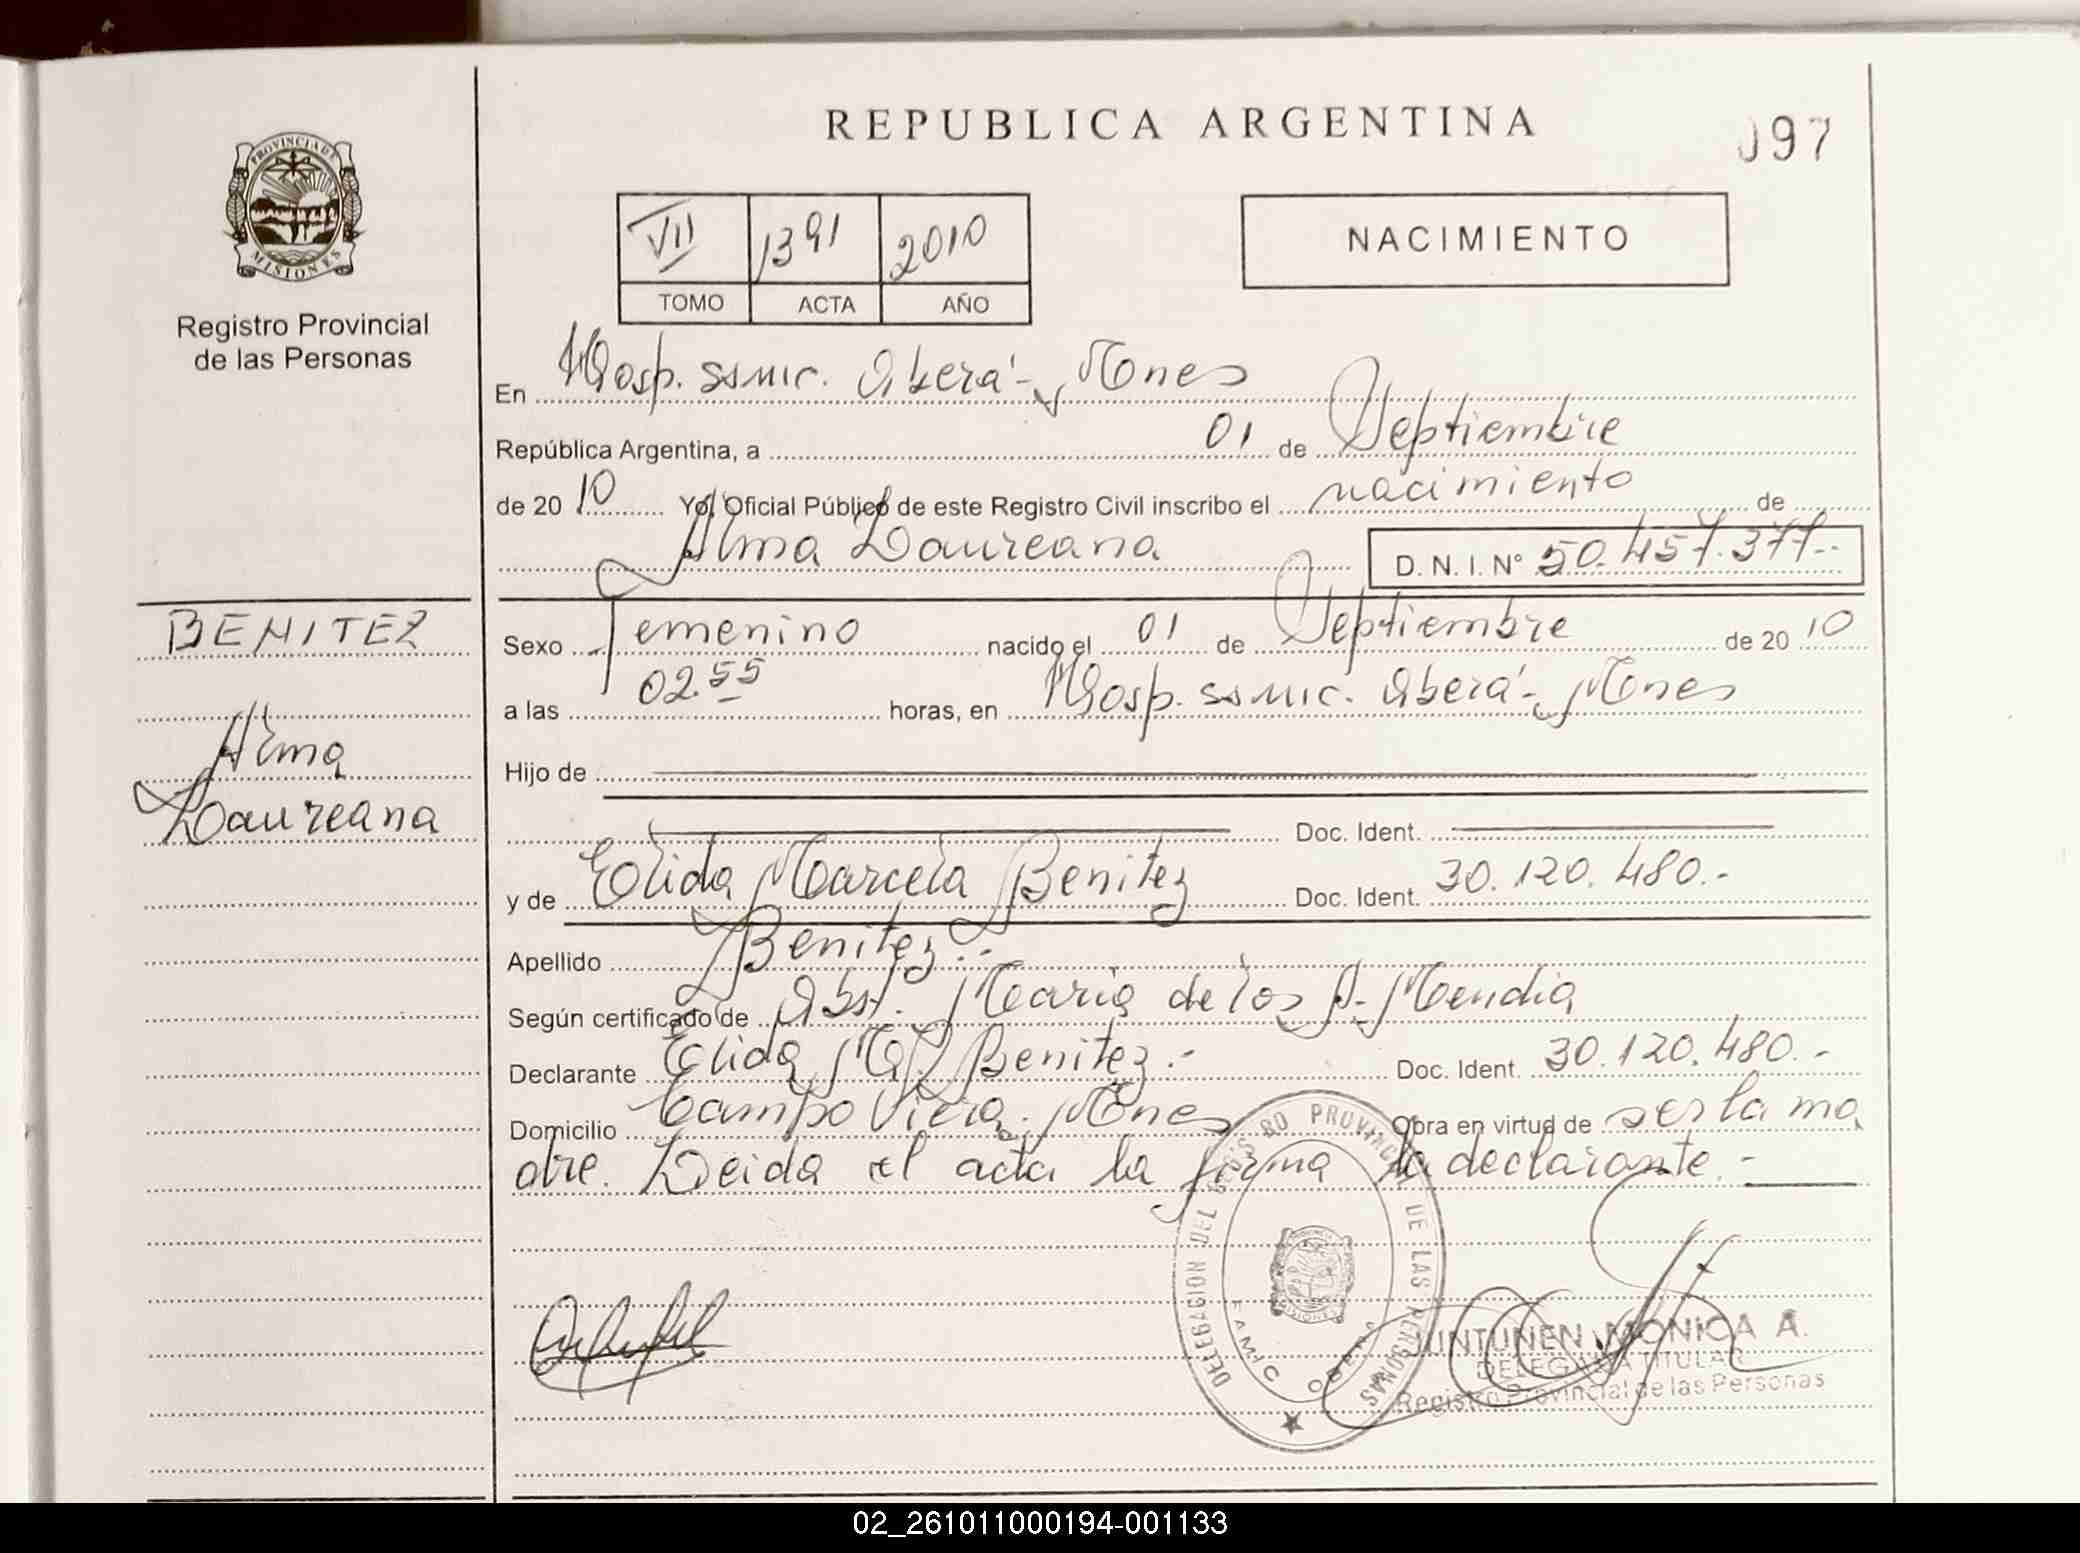 REPUBLICA ARGENTINA
097
PROVINCIA DE
MISIONES
Registro Provincial
de las Personas
VII 1391 2010
TOMO ACTA AÑO
NACIMIENTO
En Hosp. SAMIC. Oberá - Mnes
República Argentina, a 01 de Septiembre
de 20 10 Yo, Oficial Público de este Registro Civil inscribo el nacimiento de
Alma Laureana D. N. I. Nº 50.457.377.-
BENITEZ
Alma
Laureana
Sexo Femenino nacido el 01 de Septiembre de 20 10
a las 02.55 horas, en Hosp. SAMIC. Oberá - Mnes
Hijo de
Doc. Ident.
y de Elida Marcela Benitez Doc. Ident. 30.120.480.-
Apellido Benitez.-
Según certificado de Obst. Maria de los A. Mendia
Declarante Elida M. Benitez.- Doc. Ident. 30.120.480.-
Domicilio Campo Viera, Mnes Obra en virtud de ser la ma
dre. Leida el acta la firma la declarante.-
DELEGACION DEL REGISTRO PROVINCIAL DE LAS PERSONAS
MISIONES
JUNTUNEN MONICA A.
DELEGADA TITULAR
Registro Provincial de las Personas
02_261011000194-001133